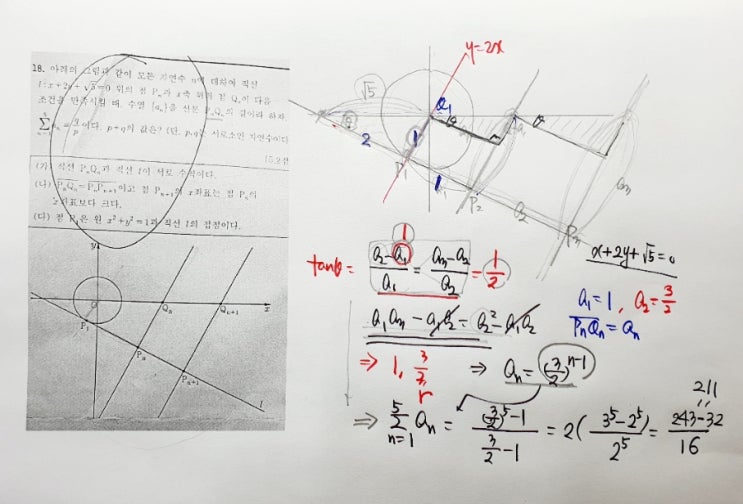 18. 아래의 그림과 같이 모든 자연수 n에 대하여 직선
l : x+2y+√5=0 위의 점 Pₙ과 x축 위의 점 Qₙ이 다음
조건을 만족시킬 때, 수열 {aₙ}을 선분 PₙQₙ의 길이라 하자.
이다. p+q의 값은? (단, p, q는 서로소인 자연수이다
(가) 직선 PₙQₙ과 직선 l이 서로 수직이다.
(나) PₙQₙ=PₙPₙ₊₁이고 점 Pₙ₊₁의 x좌표는 점 Pₙ의
x좌표보다 크다.
(다) 점 P₁은 원 x²+y²=1과 직선 l의 접점이다.
y
O
Qₙ
Qₙ₊₁
x
P₁
Pₙ
Pₙ₊₁
l
y=2x
√5
Q₁
θ
2
1
P₁
1
P₂
a₂
P₃
x+2y+√5=0
tanθ= (a₂-a₁)/a₁ = (aₘ-a₂)/a₂ = 1/2
1
a₁=1, a₂=3/2
a₁aₘ - a₁a₂ = a₂² - a₁a₂
PₙQₙ=aₙ
⇒ 1, 3/2 ⇒ aₙ=(3/2)ⁿ⁻¹
r
211
⇒ ∑ₙ₌₁⁵ aₙ = ((3/2)⁵-1)/(3/2-1) = 2((3⁵-2⁵)/2⁵) = (243-32)/16